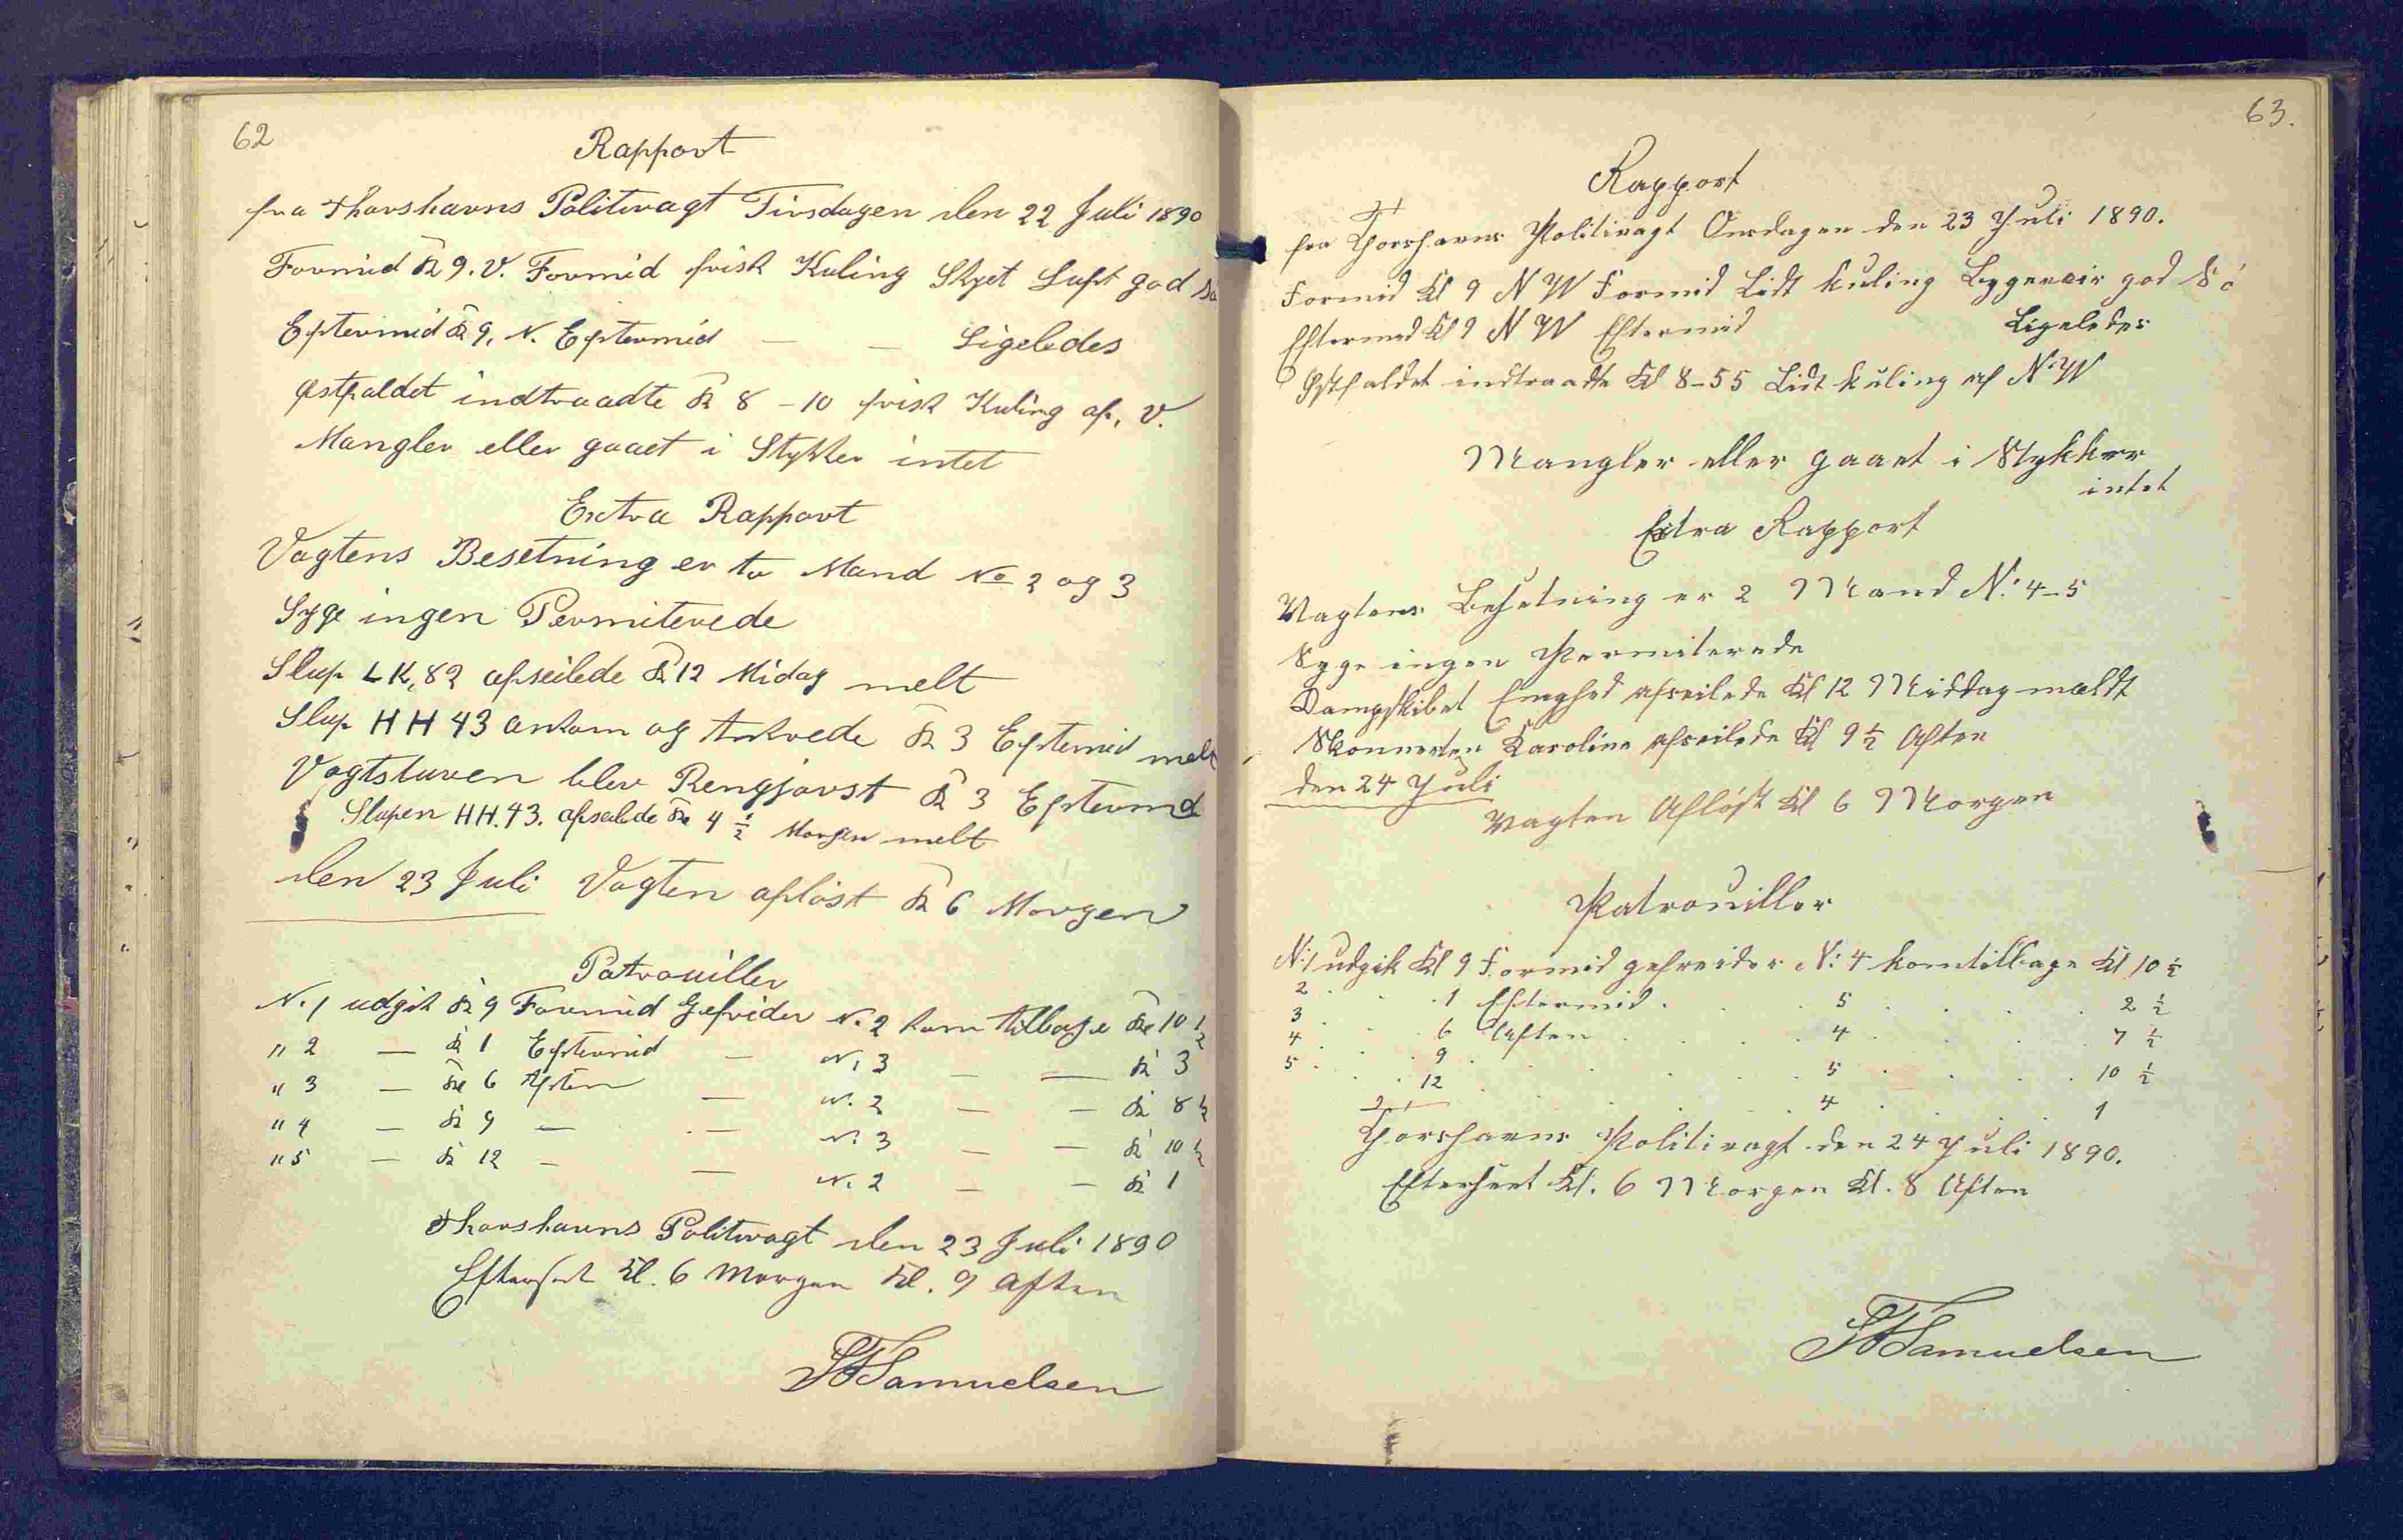 62
Rapport
fra Thorshavns Politivagt Tirsdagen den 22 Juli 1890
Formid Kl 9. V. Formid frisk Kuling Skyet Luft god
Eftermid Kl 9, N. Eftermid — — Ligeledes
Østfaldet indtraadte Kl 8-10 frisk Kuling af, V.
Mangler eller gaaet i Stykker intet
Extra Rapport
Vagtens Besetning er to Mand No 2 og 3
Syge ingen Permiterede
Slup LK, 82 afseilede Kl 12 Midag melt
Slup HH 43 ankom og Ankrede Kl 3 Eftermid melt
Vagtstuven blev Rengjørst Kl 3 Eftermd
Slupen HH. 43. afseilede Kl 4 1/2 Morgen melt
den 23 Juli Vagten afløst Kl 6 Morgen
Patrouiller
N. 1 udgik Kl 9 Formid Gefrider N. 2 kom tilbage Kl 10 1/2
" 2 — Kl 1 Eftermid — N. 3 — — Kl 3
" 3 — Kl 6 Aften — N. 2 — — Kl 8 1/2
" 4 — Kl 9 — — N. 3 — — Kl 10 1/2
" 5 — Kl 12 — — N. 2 — — Kl 1
Thorshavns Politivagt den 23 Juli 1890
Efterset Kl. 6 Morgen Kl. 9 Aften
Samuelsen
63.
Rapport
fra Thorshavns Politivagt Onsdagen den 23 Juli 1890.
Formid Kl 9 N W Formid Lidt kuling Bygeveir god Sö
Eftermid Kl 9 N W Eftermid Ligeledes
Østfaldet indtraadte Kl 8-55 Lidt kuling af N.W
Mangler eller gaaet i Stykker
intet
Extra Rapport
Vagtens Besetning er 2 Mand N: 4-5
Syge ingen Permiterede
Dampskibet afseilede Kl 12 Middag mældt
Skonnerten Karoline afseilede Kl 9 1/2 Aften
den 24 Juli
Vagten Afløst Kl 6 Morgen
Patrouiller
N: 1 udgik Kl 9 Formid gefreider N: 4 kom tilbage Kl 10 1/2
2 . . 1 Eftermid . . 5 . . . 2 1/2
3 . . 6 Aften . . 4 . . . 7 1/2
4 . . 9 . . . 5 . . . 10 1/2
5 . . 12 . . . 4 . . . 1
Thorshavns Politivagt den 24 Juli 1890.
Efterseet Kl. 6 Morgen Kl. 8 Aften
Samuelsen